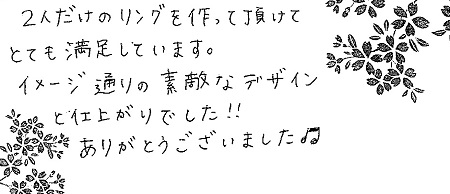 2人だけのリングを作って頂けて
とても満足しています。
イメージ通りの素敵なデザイン
と仕上がりでした!!
ありがとうございました♫